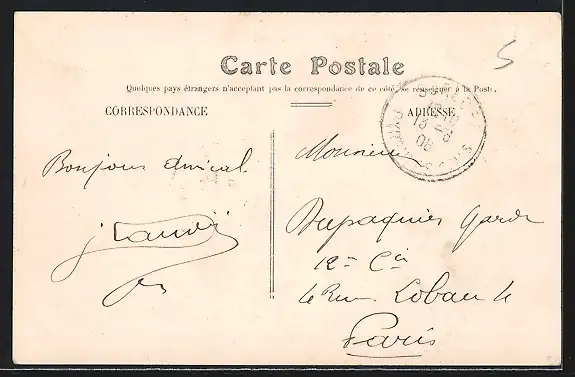 Carte Postale
Quelques pays étrangers n'acceptant pas la correspondance de ce côté, se renseigner à la Poste.
CORRESPONDANCE
ADRESSE
Bonjour Amical
Monsieur
Dupaquier Garde
12e Cie
4 Rue Lobau 4
Paris
5
13
08